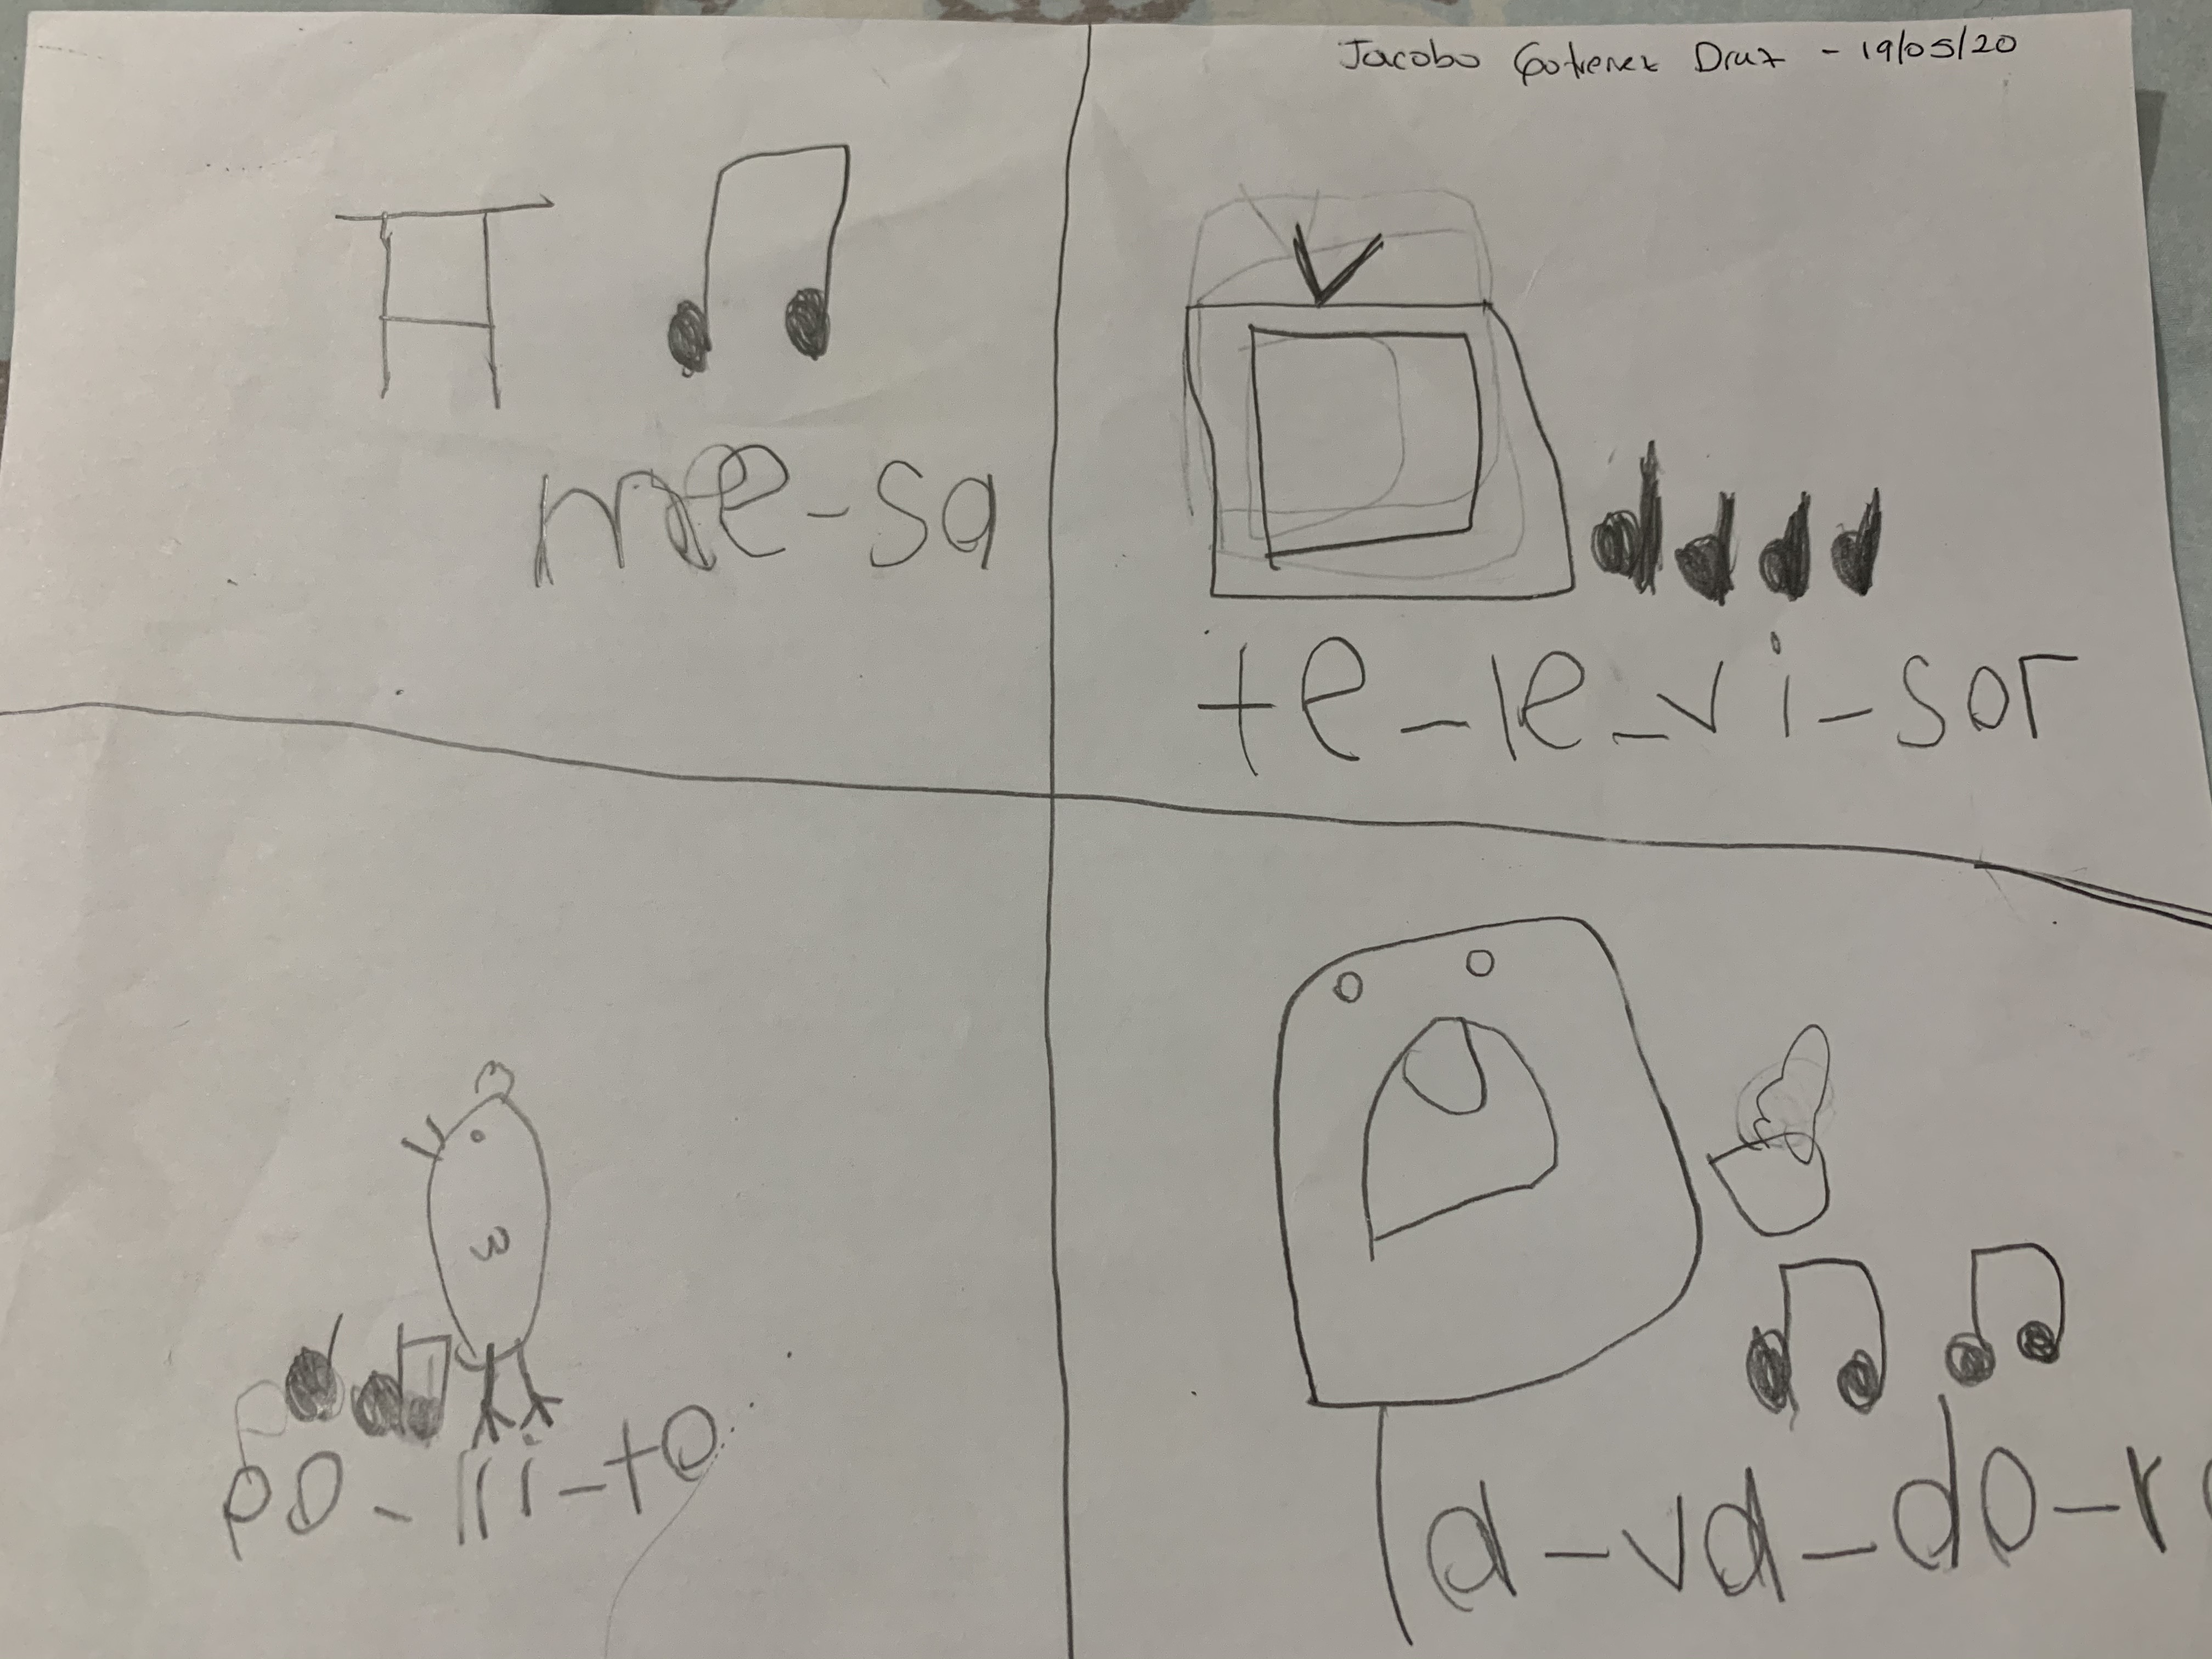 Jacobo Gutierrez Diaz - 19/05/20
me-sa
te-le-vi-sor
po-lli-to
la-va-do-r